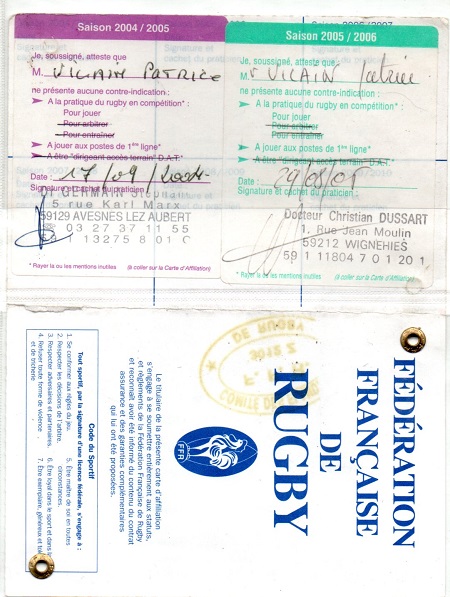 Saison 2004 / 2005
Je, soussigné, atteste que
M. VILAIN PATRICE
ne présente aucune contre-indication :
A la pratique du rugby en compétition* :
Pour jouer
Pour arbitrer
Pour entraîner
A jouer aux postes de 1ère ligne*
A être "dirigeant accès terrain" D.A.T.*
Date : 17/09/2004
Signature et cachet du praticien :
GERMAIN
5 rue Karl Marx
59129 AVESNES LEZ AUBERT
03 27 37 11 55
* Rayer la ou les mentions inutiles (à coller sur la Carte d'Affiliation)
Saison 2005 / 2006
Je, soussigné, atteste que
M. VILAIN Patrice
ne présente aucune contre-indication :
A la pratique du rugby en compétition* :
Pour jouer
Pour arbitrer
Pour entraîner
A jouer aux postes de 1ère ligne*
A être "dirigeant accès terrain" D.A.T.*
Date :
Signature et cachet du praticien :
Docteur Christian DUSSART
1, Rue Jean Moulin
59212 WIGNEHIES
59 1 11804 7 0 1 20 1
* Rayer la ou les mentions inutiles (à coller sur la Carte d'Affiliation)
FÉDÉRATION
FRANÇAISE
DE
RUGBY
DE RUGBY
FFR
Le titulaire de la présente carte d'affiliation
s'engage à se soumettre entièrement aux statuts
et règlements de la Fédération Française de Rugby
et reconnaît avoir été informé du contenu du contrat
assurance et des garanties complémentaires
qui lui ont été proposées.
Code du Sportif
Tout sportif, par la signature d'une licence fédérale, s'engage à :
1. Se conformer aux règles du jeu.
2. Respecter les décisions de l'arbitre.
3. Respecter adversaires et partenaires.
4. Refuser toute forme de violence
et de tricherie
5. Être maître de soi en toutes
circonstances.
6. Être loyal dans le sport et dans la
7. Être exemplaire, généreux et